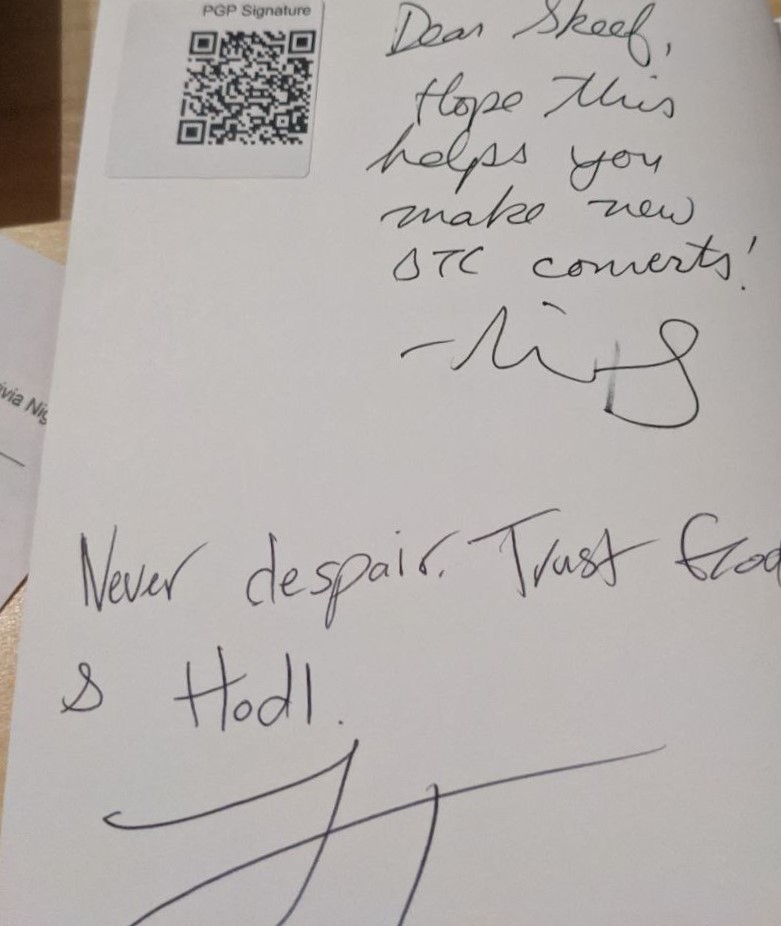 PGP Signature
Dear Skeef,
Hope this
helps you
make new
BTC converts!
ivia Nig
Never despair. Trust God
& Hodl.